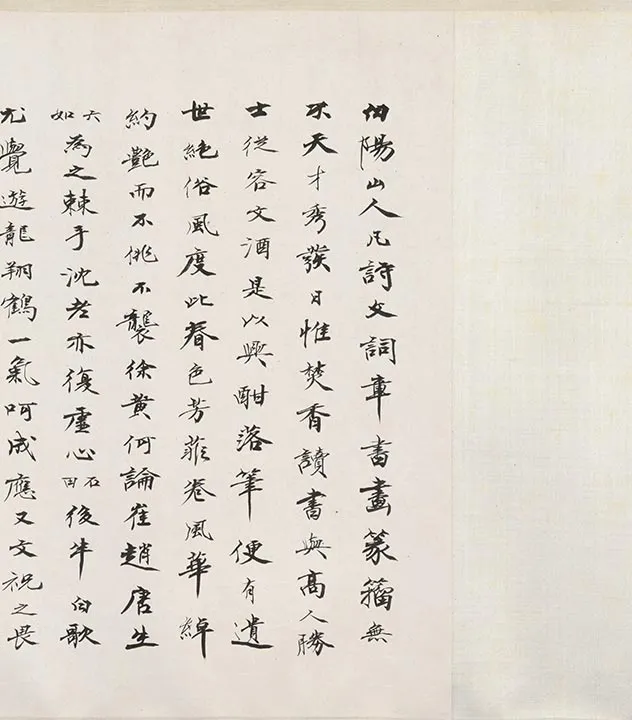 白陽山人凡詩文詞章書畫篆籀無
不天才秀發日惟焚香讀書與高人勝
士從容文酒是以興酣落筆便有遺
世絕俗風度此春色芳菲卷風華綽
約艷而不佻不襲徐黃何論崔趙唐生
六如為之棘手沈老亦復虛心石田後半白歌
尤覺遊龍翔鶴一氣呵成應又文祝之畏